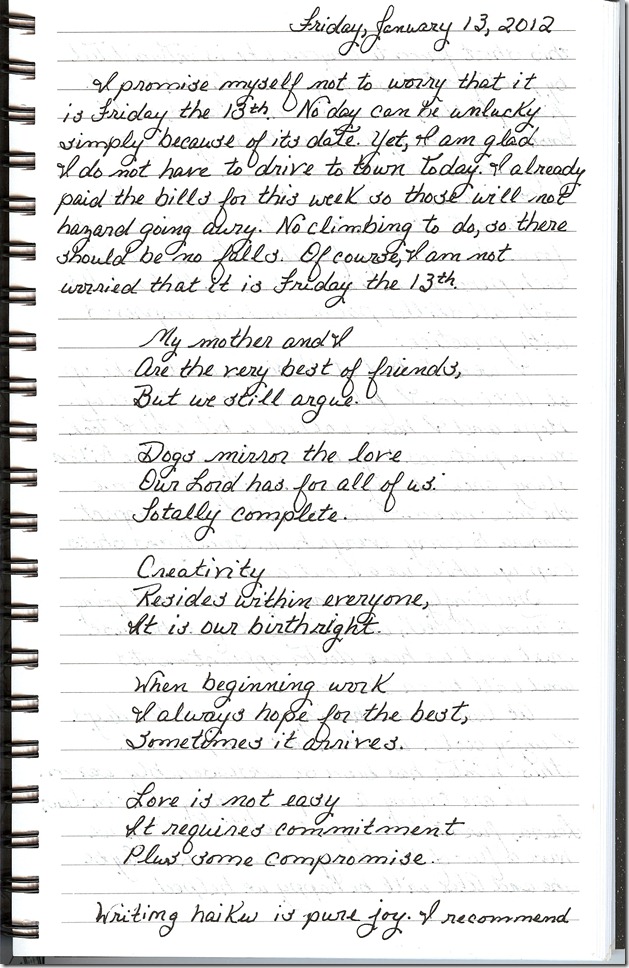 Friday, January 13, 2012
I promise myself not to worry that it
is Friday the 13th. No day can be unlucky
simply because of its date. Yet, I am glad
I do not have to drive to town today. I already
paid the bills for this week so those will not
hazard going awry. No climbing to do, so there
should be no falls. Of course, I am not
worried that it is Friday the 13th.
My mother and I
Are the very best of friends,
But we still argue.
Dogs mirror the love
Our Lord has for all of us:
Totally complete.
Creativity
Resides within everyone,
It is our birthright.
When beginning work
I always hope for the best,
Sometimes it arrives.
Love is not easy
It requires commitment
Plus some compromise.
Writing haiku is pure joy. I recommend